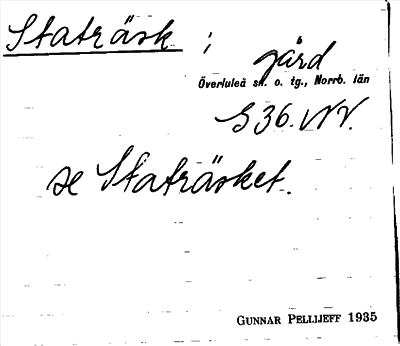 Staträsk ; gård
Överluleå sn. o. tg., Norrb. län
S 36. NV.
se Staträsket.
GUNNAR PELLIJEFF 1935